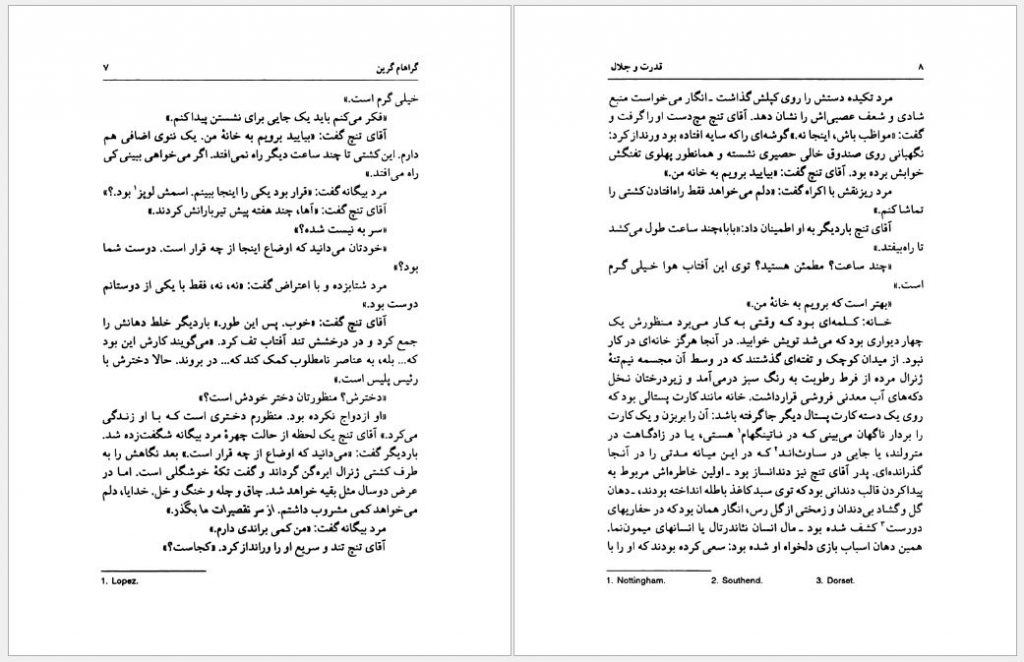 گراهام گرین ۷
خیلی گرم است.»
«فکر می‌کنم باید یک جایی برای نشستن پیدا کنم.»
آقای تنچ گفت: «بیایید برویم به خانهٔ من. یک ننوی اضافی هم
دارم. این کشتی تا چند ساعت دیگر راه نمی‌افتد. اگر می‌خواهی ببینی کی
راه می‌افتد.»
مرد بیگانه گفت: «قرار بود یکی را اینجا ببینم. اسمش لوپز۱ بود.؟»
آقای تنچ گفت: «آها، چند هفته پیش تیربارانش کردند.»
«سر به نیست شده؟»
«خودتان می‌دانید که اوضاع اینجا از چه قرار است. دوست شما
بود؟»
مرد شتابزده و با اعتراض گفت: «نه، نه، فقط با یکی از دوستانم
دوست بود.»
آقای تنچ گفت: «خوب. پس این طور.» باردیگر خلط دهانش را
جمع کرد و در درخشش تند آفتاب تف کرد. «می‌گویند کارش این بود
که... بله، به عناصر نامطلوب کمک کند که... در بروند. حالا دخترش با
رئیس پلیس است.»
«دخترش؟ منظورتان دختر خودش است؟»
«او ازدواج نکرده بود. منظورم دختری است که با او زندگی
می‌کرد.» آقای تنچ یک لحظه از حالت چهرهٔ مرد بیگانه شگفت‌زده شد.
باردیگر گفت: «می‌دانید که اوضاع از چه قرار است.» بعد نگاهش را به
طرف کشتی ژنرال ابره‌گن گرداند و گفت تکهٔ خوشگلی است. اما در
عرض دوسال مثل بقیه خواهد شد. چاق و چله و خنگ و خل. خدایا، دلم
می‌خواهد کمی مشروب داشتم. از سر تقصیرات ما بگذر.»
مرد بیگانه گفت: «من کمی براندی دارم.»
آقای تنچ تند و سریع او را ورانداز کرد. «کجاست؟»
1. Lopez.
۸ قدرت و جلال
مرد تکیده دستش را روی کپلش گذاشت ـ انگار می‌خواست منبع
شادی و ضعف عصبی‌اش را نشان دهد. آقای تنچ مچ‌دست او را گرفت و
گفت: «مواظب باش، اینجا نه.» گوشه‌ای را که سایه افتاده بود ورنداز کرد:
نگهبانی روی صندوق خالی حصیری نشسته و همانطور پهلوی تفنگش
خوابش برده بود. آقای تنچ گفت: «بیایید برویم به خانه من.»
مرد ریزنقش با اکراه گفت: «دلم می‌خواهد فقط راه‌افتادن کشتی را
تماشا کنم.»
آقای تنچ باردیگر به او اطمینان داد: «بابا، چند ساعت طول می‌کشد
تا راه‌بیفتد.»
«چند ساعت؟ مطمئن هستید؟ توی این آفتاب هوا خیلی گرم
است.»
«بهتر است که برویم به خانهٔ من.»
خانه: کلمه‌ای بود که وقتی به کار می‌برد منظورش یک
چهار دیواری بود که می‌شد تویش خوابید. در آنجا هرگز خانه‌ای در کار
نبود. از میدان کوچک و تفته‌ای گذشتند که در وسط آن مجسمه نیم‌تنهٔ
ژنرال مرده از فرط رطوبت به رنگ سبز درمی‌آمد و زیردرختان نخل
دکه‌های آب معدنی فروشی قرارداشت. خانه مانند کارت پستالی بود که
روی یک دسته کارت پستال دیگر جاگرفته باشد: آن را بریزن و یک کارت
را بردار ناگهان می‌بینی که در ناتینگهام۱ هستی، یا در زادگاهت در
مترولند، یا جایی در ساوث‌اند۲ که در این میانه مدتی را در آنجا
گذرانده‌ای. پدر آقای تنچ نیز دندانساز بود ـ اولین خاطره‌اش مربوط به
پیداکردن قالب دندانی بود که توی سبد کاغذ باطله انداخته بودند، ـ دهان
گل و گشاد بی‌دندان و زمختی از گل رس، انگار همان بود که در حفاریهای
دورست۳ کشف شده بود ـ مال انسان نئاندرتال یا انسانهای میمون‌نما.
همین دهان اسباب بازی دلخواه او شده بود: سعی کرده بودند که او را با
1. Nottingham. 2. Southend. 3. Dorset.